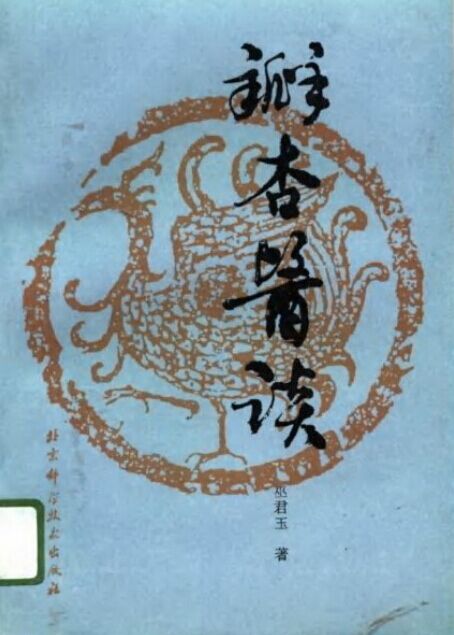 瓣杏醫談
巫君玉 著
北京科学技术出版社